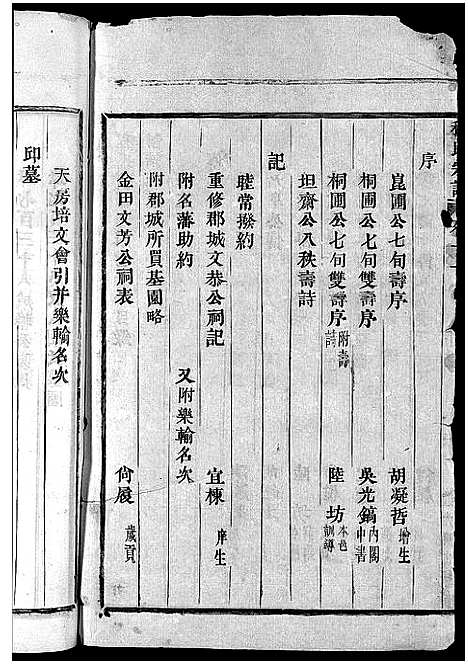 序
崑圃公七旬壽序 胡凝哲 增生
桐圃公七旬雙壽序 吳光鎬 內閣中書
桐圃公七旬雙壽序 附壽詩 陸坊 本邑訓導
坦齋公八秩壽詩
記
睦常撥約
重修郡城文恭公祠記 宜棟 庠生
附名藩助約 又附樂輸名次
附郡城所買基園略
金田文芳公祠表 尙展 歲貢
天房培文會引并樂輸名次
邱墓